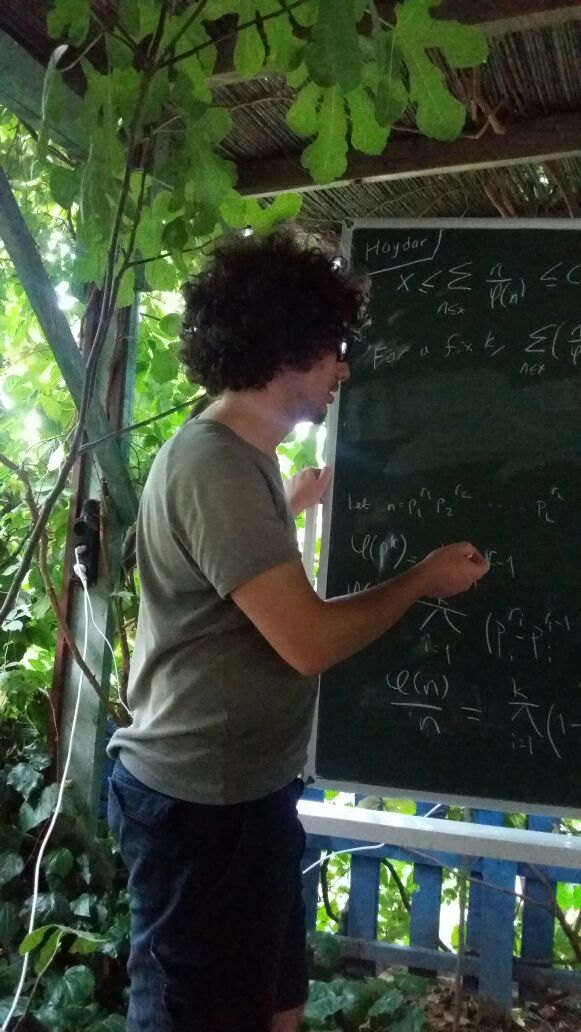 Haydar
x ≤ Σ n≤x n/φ(n) ≤ C
For a fix k, Σ n≤x (n/φ
Let n = p₁^r₁ p₂^r₂ ...... pₖ^rₖ
φ(p^k) = k-1
k π i=1 (pᵢ^rᵢ - pᵢ^rᵢ-1
φ(n)/n = k π i=1 (1-